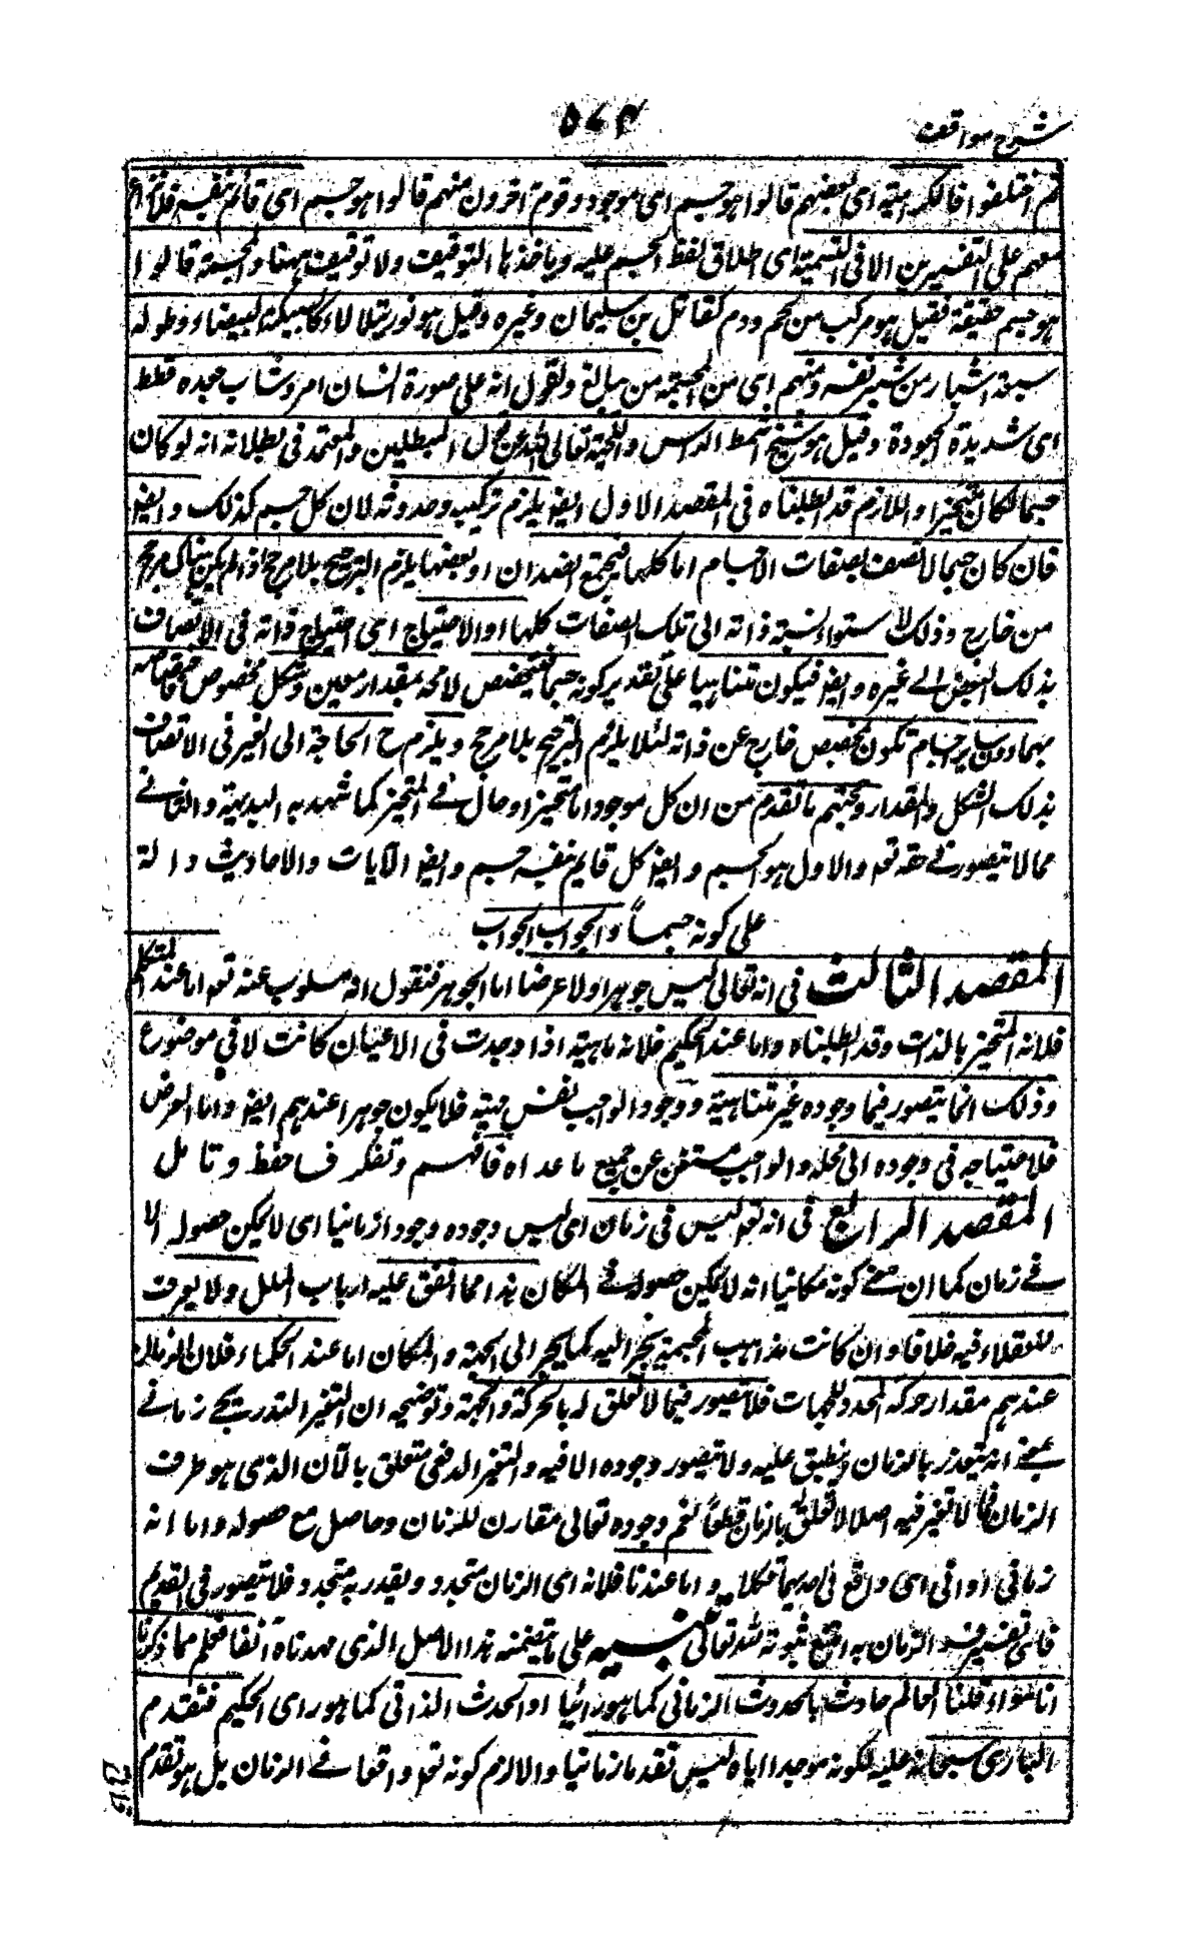 شرح مواقف
۵۷۴
ثم اختلفوا فالكرامية اى بعضهم قالوا هو جسم اى موجود وقوم آخرون منهم قالوا هو جسم اى قائم بنفسه فلا نزاع
معهم على التفسيرين الا فى التسمية اى اطلاق لفظ الجسم عليه وماخذها التوقيف ولا توقيف ههنا والمجسمة قالوا
هو جسم حقيقة فقيل هو مركب من لحم ودم كمقاتل بن سليمان وغيره وقيل هو نور يتلالاء كالسبيكة البيضاء وطوله
سبعة اشبار من شبر نفسه ومنهم اى من المجسمة من يبالغ ويقول انه على صورة انسان امرد شاب جعد قطط
اى شديدة الجعودة وقيل هو شيخ اشمط الراس واللحية تعالى الله عن قول المبطلين والمعتمد فى بطلانه انه لو كان
جسما لكان متحيزا واللازم قد ابطلناه فى المقصد الاول ايضا يلزم تركيبه وحدوثه لان كل جسم كذلك وايضا
فان كان جسما لاتصف بصفات الاجسام اما كلها فيجتمع الضدان او بعضها يلزم الترجيح بلا مرجح اذا لم يكن هناك مرجح
من خارج وذلك لاستواء نسبة ذاته الى تلك الصفات كلها او الاحتياج اى احتياج ذاته فى الاتصاف
بذلك البعض الى غيره وايضا فيكون متناهيا على تقدير كونه جسما فيتخصص لا محة بمقدار معين وشكل مخصوص واختصاصه
بهما دون ساير اجسام تكون بمخصص خارج عن ذاته لئلا يلزم الترجيح بلا مرجح ويلزم ح الحاجة الى الغير فى الاتصاف
بذلك الشكل والمقدار وحجتهم ما تقدم من ان كل موجود اما متحيز او حال فى المتحيز كما شهد به البديهة والثانى
مما لا يتصور فى حقه تعہ والاول هو الجسم وايضا كل قايم بنفسه جسم وايضا الآيات والاحاديث دالة
على كونه جسماً والجواب الجواب
المقصد الثالث فى انه تعالى ليس جوهرا ولا عرضا اما الجوهر فنقول انه مسلوب عنه تعہ اما عند المتكلم
فلانه المتحيز بالذات وقد ابطلناه واما عند الحكيم فلانه ماهية اذا وجدت فى الاعيان كانت لا فى موضوع
وذلك انما يتصور فيما وجوده غير متناهية ووجود الواجب نفس مهيته فلا يكون جوهرا عندهم ايضا واما العرض
فلاحتياجه فى وجوده الى محله والواجب مستغن عن جميع ما عداه فافهم وتفكر فاحفظ وتامل
المقصد الرابع فى انه تعہ ليس فى زمان اى ليس وجوده وجودا زمانيا اى لا يمكن حصوله الا
فى زمان كما ان معنى كونه مكانيا انه لا يمكن حصوله الا فى المكان هذا مما اتفق عليه ارباب الملل ولا يعرف
للعقلاء فيه خلافا وان كانت مذاهب المجسمة ينجر اليه كما ينجر الى الجهة والمكان اما عند الحكماء فلان الزمان
عندهم مقدار حركة المحدد للجهات فلا يتصور فيما لا تعلق له بالحركة والجهة وتوضيحه ان التغير التدريجى زمانى
بمعنى انه يتقدر بالزمان وينطبق عليه ولا يتصور وجوده الا فيه والتغير الدفعى متعلق بالآن الذى هو طرف
الزمان فما لا تغير فيه اصلا لا تعلق له بالزمان قطعاً نعم وجوده تعالى مقارن للزمان وحاصل مع حصوله واما انه
زمانى او آنى اى واقع فى احديهما فكلا واما عندنا فلانه اى الزمان متجدد ويقدر به متجدد فلا يتصور فى القديم
فاى تفسير فسر الزمان به امتنع ثبوته لله تعالى تنبيه على ما يتضمنه هذا الاصل الذى مهدناه آنفا فعلم مما ذكرنا
انا سواء قلنا العالم حادث بالحدوث الزمانى كما هو رائنا او الحدث الذاتى كما هو راى الحكيم فتقدم
البارى سبحانه عليه لكونه موجدا اياه ليس تقدما زمانيا والا لزم كونه تعہ واقعا فى الزمان بل هو تقدم